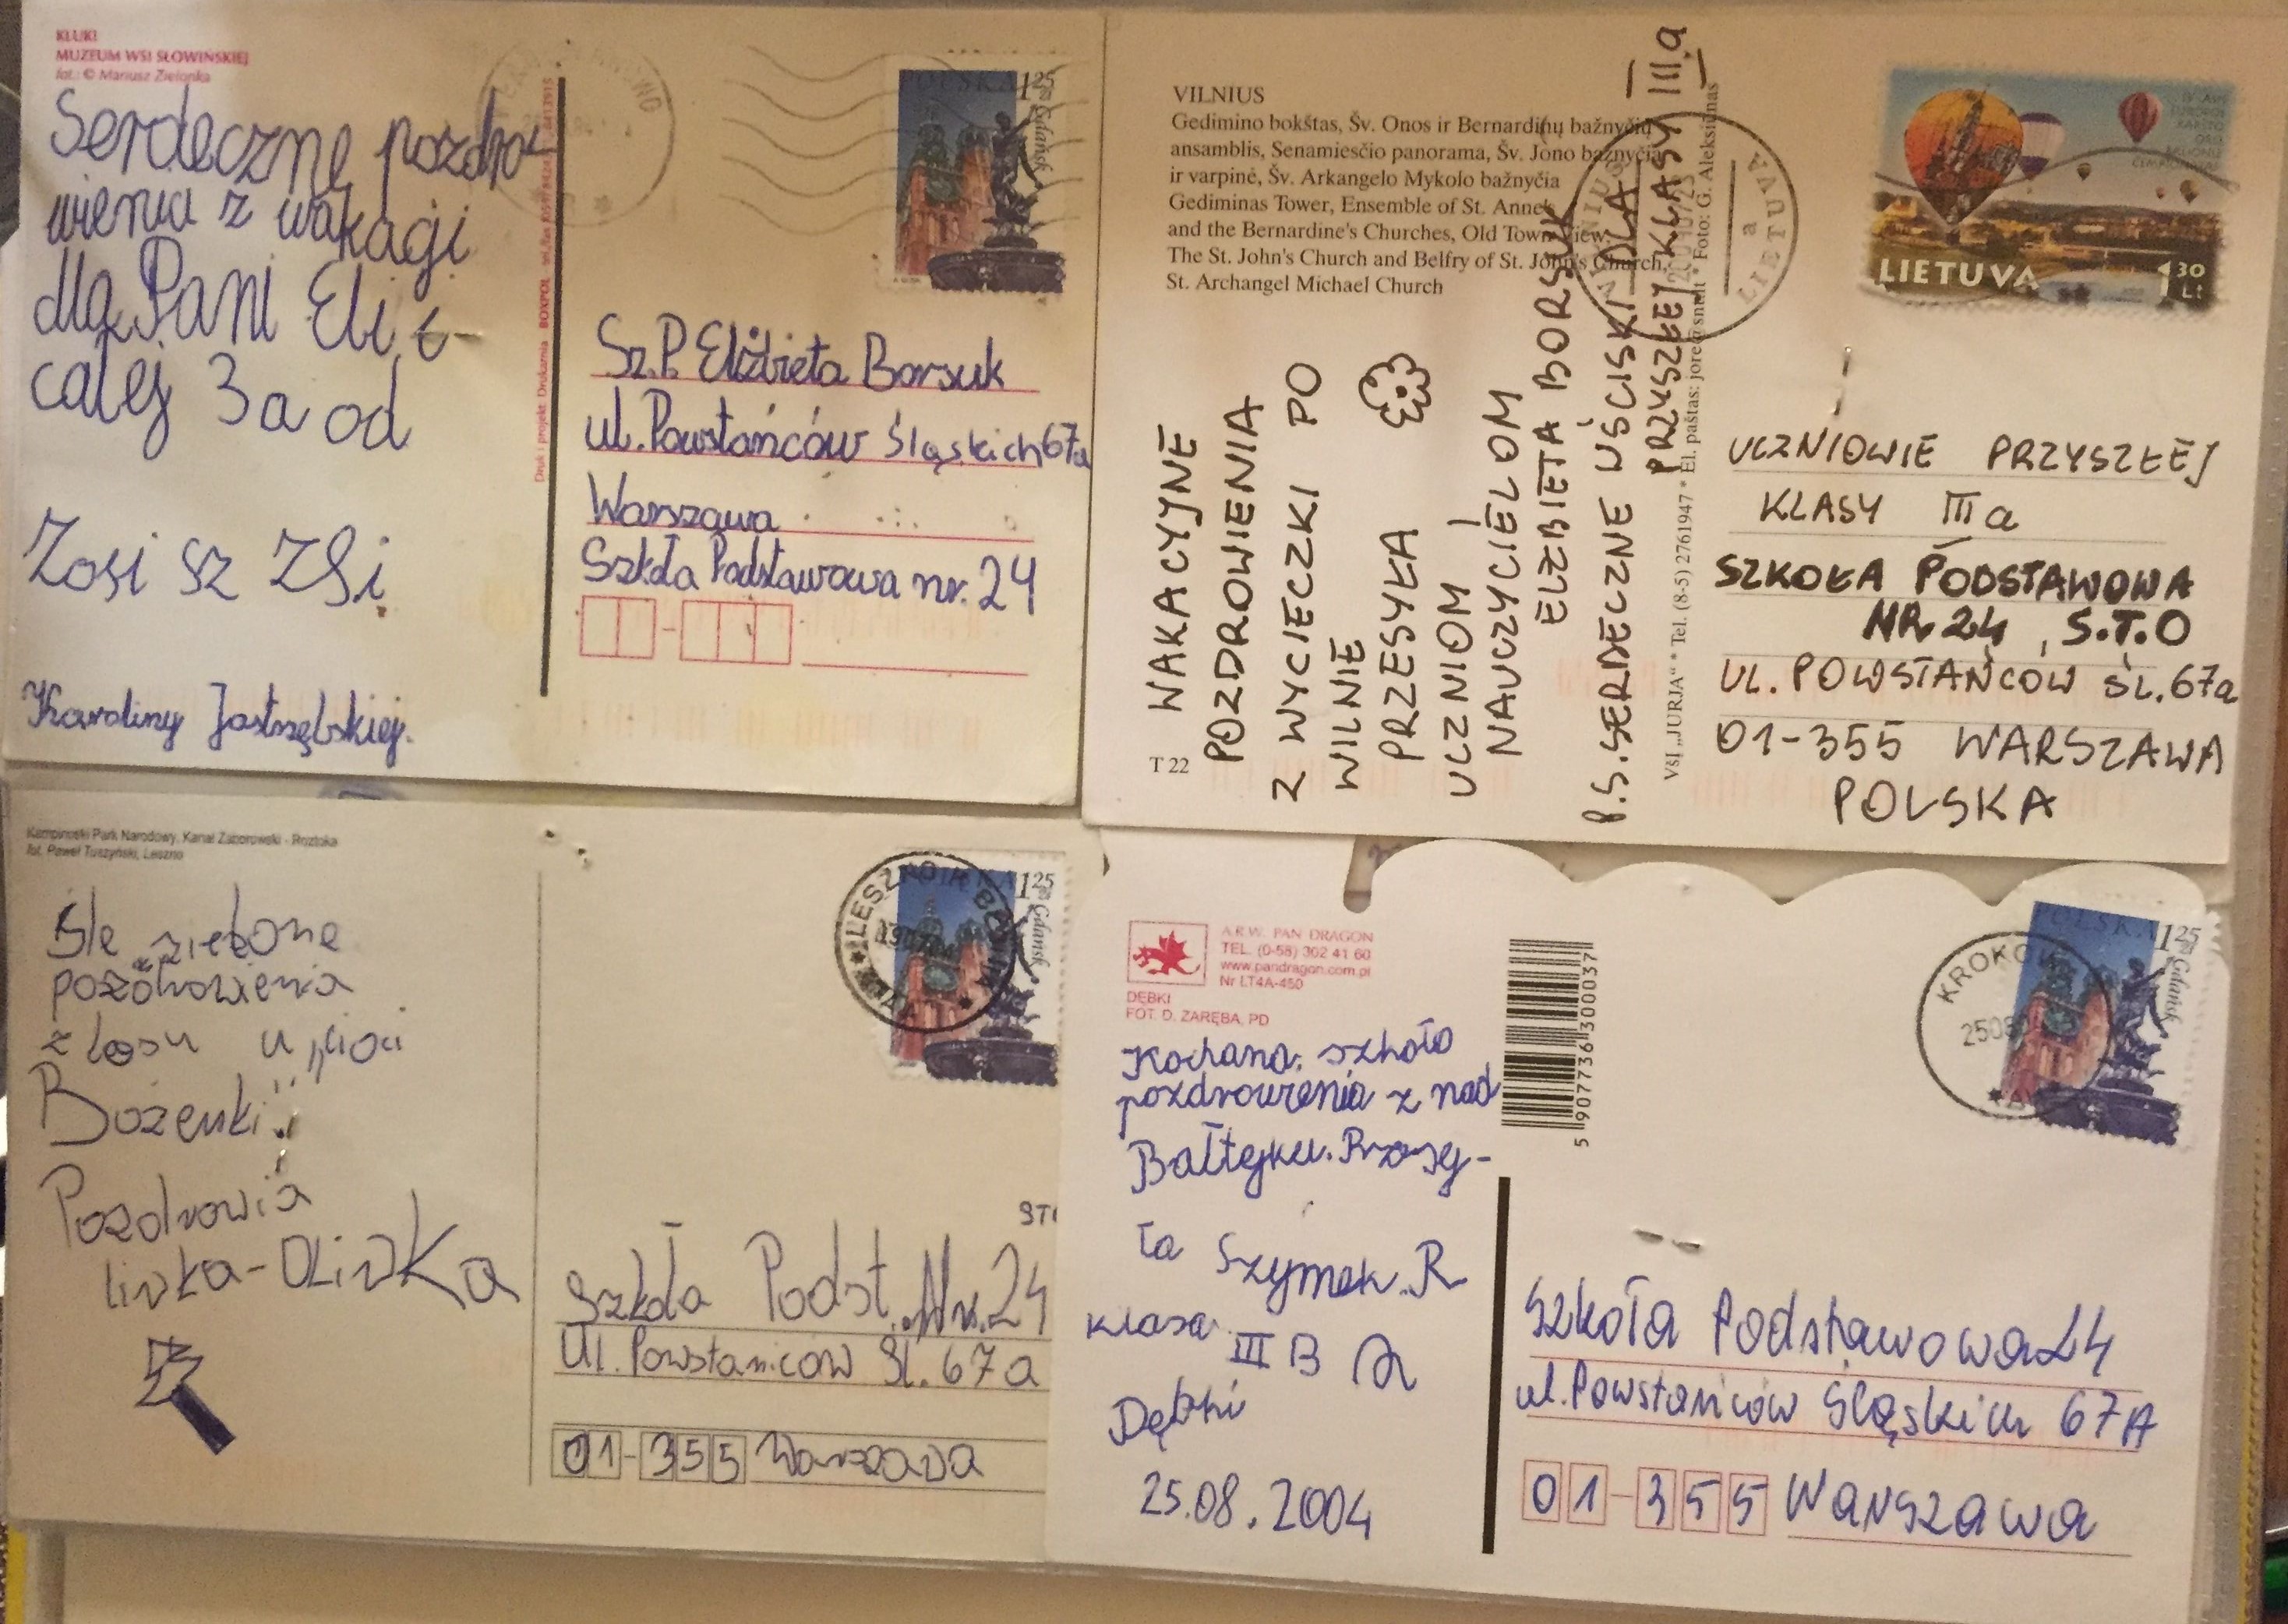 KLUKI
MUZEUM WSI SŁOWIŃSKIEJ
fot.: © Mariusz Zielonka
Serdeczne pozdro-
wienia z wakagi
dla Pani Eli i
całej 3a od
Zosi
Karoliny Jastrzębskiej.
Druk i projekt: Drukarnia BOXPOL
POLSKA 1 25
Gdańsk
Sz.P. Elżbieta Borsuk
ul. Powstańców Śląskich 67a
Warszawa
Szkoła Podstawowa nr. 24
VILNIUS
Gedimino bokštas, Šv. Onos ir Bernardinų bažnyčių
ansamblis, Senamiesčio panorama, Šv. Jono bažnyčia
ir varpinė, Šv. Arkangelo Mykolo bažnyčia
Gediminas Tower, Ensemble of St. Anne's
and the Bernardine's Churches, Old Town View,
The St. John's Church and Belfry of St. John's Church,
St. Archangel Michael Church
T 22
WAKACYJNE
POZDROWIENIA
Z WYCIECZKI PO
WILNIE
PRZESYŁA
UCZNIOM I
NAUCZYCIELOM
ELŻBIETA BORSUK
P.S. SERDECZNE UŚCISKI DLA
PRZYSZŁEJ KLASY III a
VšĮ „JURJA“ * Tel. (8-5) 2761947 * El. paštas: jore@snait * Foto: G. Aleksiūnas
VILNIUS
LIETUVA
a
LIETUVA
1 30 Lt
UCZNIOWIE PRZYSZŁEJ
KLASY III a
SZKOŁA PODSTAWOWA
NR 24, S.T.O
UL. POWSTAŃCÓW ŚL. 67a
01-355 WARSZAWA
POLSKA
Kampinoski Park Narodowy, Kanał Zaborowski - Roztoka
fot. Paweł Tuszyński, Leszno
Ślę zielone
pozdrowienia
z lasu u „cioci
Bożenki"
Pozdrowia
liwka-OLiwKa
LESZNO K. BŁONIA
POLSKA 1 25
Gdańsk
STO
Szkoła Podst. Nr. 24
Ul. Powstańców Śl. 67a
01-355 Warszawa
A.R.W. PAN DRAGON
TEL. (0-58) 302 41 60
www.pandragon.com.pl
Nr LT4A-450
DĘBKI
FOT. D. ZARĘBA, PD
5 907736 300037
Kochana szkoło
pozdrowienia z nad
Bałtyku. Przesy-
ła Szymek. R
klasa III B
Dębki
25.08.2004
KROKOWA
POLSKA 1 25
Gdańsk
Szkoła Podstawowa 24
ul. Powstańców Śląskich 67A
01-355 Warszawa